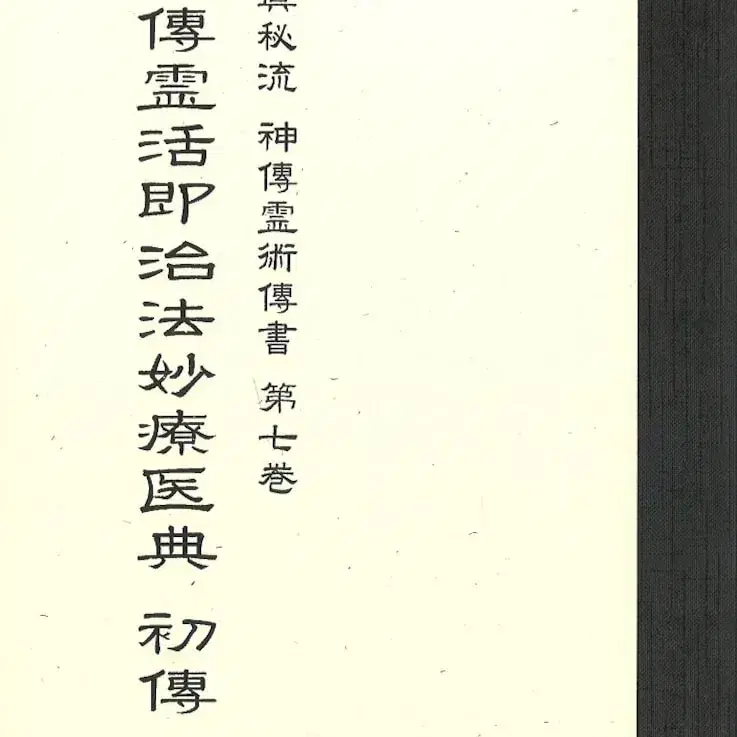 秘流 神傳霊術傳書 第七巻
傳霊活即治法妙療医典 初傳